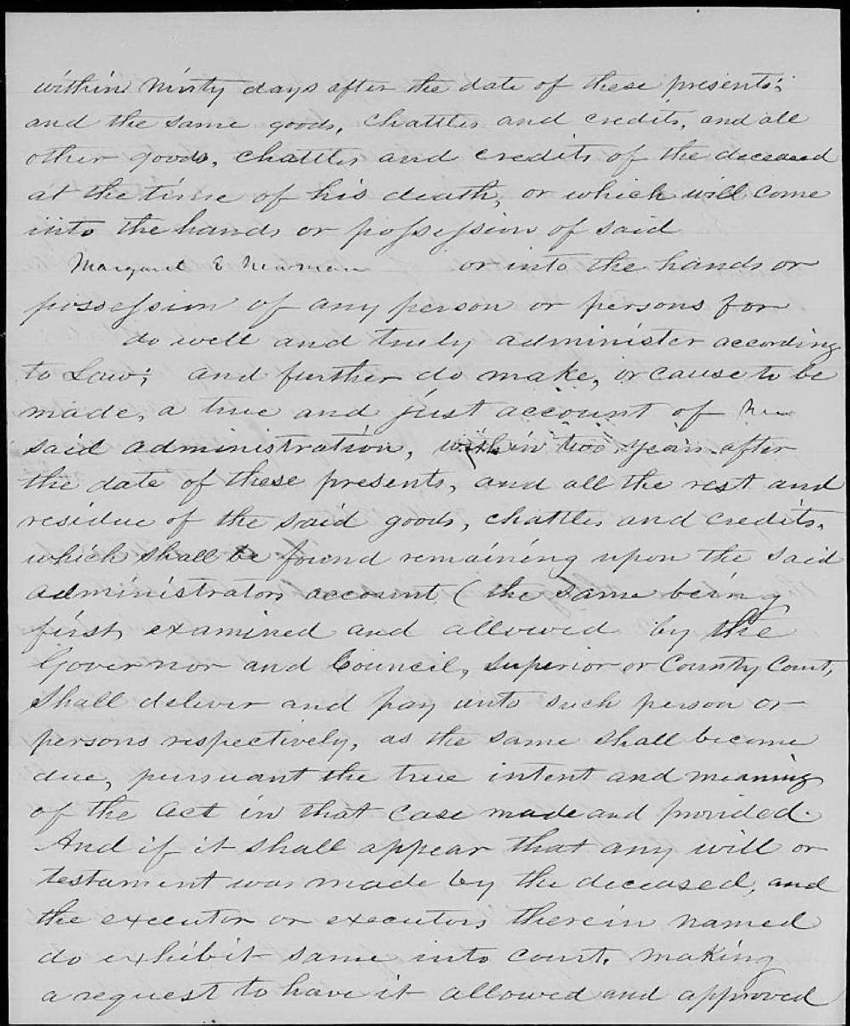 within Ninty days after the date of these presents;
and the same goods, Chattles and credits, and all
other goods, chattles and credits of the deceased
at the time of his death, or which will come
into the hands or possession of said
Margaret E Newman or into the hands or
possession of any person or persons for
do well and truly administer according
to Law; and further do make, or cause to be
made, a true and just account of
said administration, within two years after
the date of these presents, and all the rest and
residue of the said goods, chattles and credits,
which shall be found remaining upon the said
administrators account (the same being
first examined and allowed by the
Governor and Council, Superior or County Court,
Shall deliver and pay unto such person or
persons respectively, as the same shall become
due, pursuant the true intent and meaning
of the act in that case made and provided.
And if it shall appear that any will or
testament was made by the deceased, and
the executor or executors therein named
do exhibit same into court, making
a request to have it allowed and approved